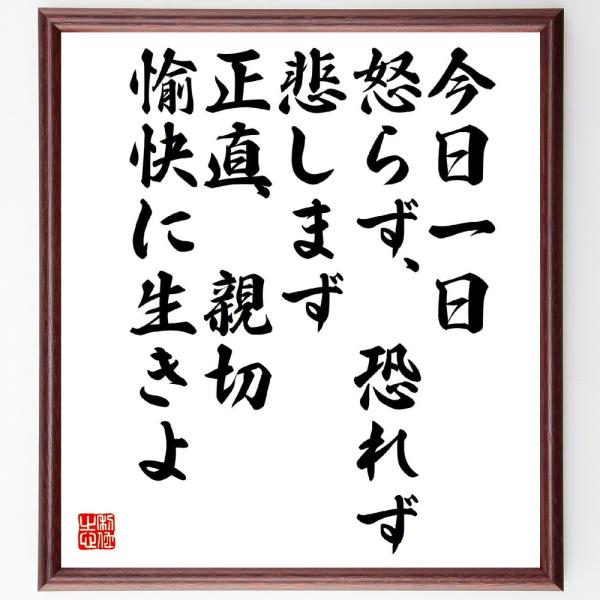 今日一日
怒らず、恐れず
悲しまず
正直、親切
愉快に生きよ